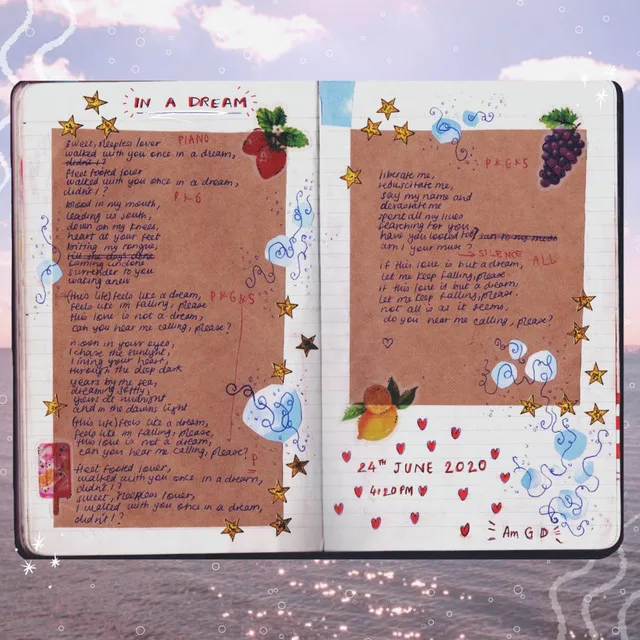 IN A DREAM
sweet, sleepless lover
PIANO
walked with you once in a dream,
didn't I?
fleet footed lover
walked with you once in a dream,
didn't I?
P K G
blood in my mouth,
leading us south,
down on my knees,
heart at your feet
biting my tongue,
coming undone
surrender to you
waking anew
(this life) feels like a dream,
P K G K S
feels like im falling, please
this love is not a dream,
can you hear me calling, please?
moon in your eyes,
I chase the sunlight,
lining your heart,
through the deep dark
years by the sea,
dreaming softly,
yours at midnight
and in the dawns light
(this life) feels like a dream,
feels like im falling, please,
this love is not a dream,
can you hear me calling, please?
P
fleet footed lover,
walked with you once in a dream,
didn't I?
sweet, sleepless lover,
I walked with you once in a dream,
didn't I?
P K G K S
liberate me,
resuscitate me,
say my name and
devastate me
spent all my lives
searching for you
have you looted too?
am I your muse?
→ SILENCE
ALL
if this love is but a dream,
let me keep falling, please.
if this love is but a dream,
let me keep falling, please.
not all is as it seems,
do you hear me calling, please?
24TH JUNE 2020
4:20PM
Am G D